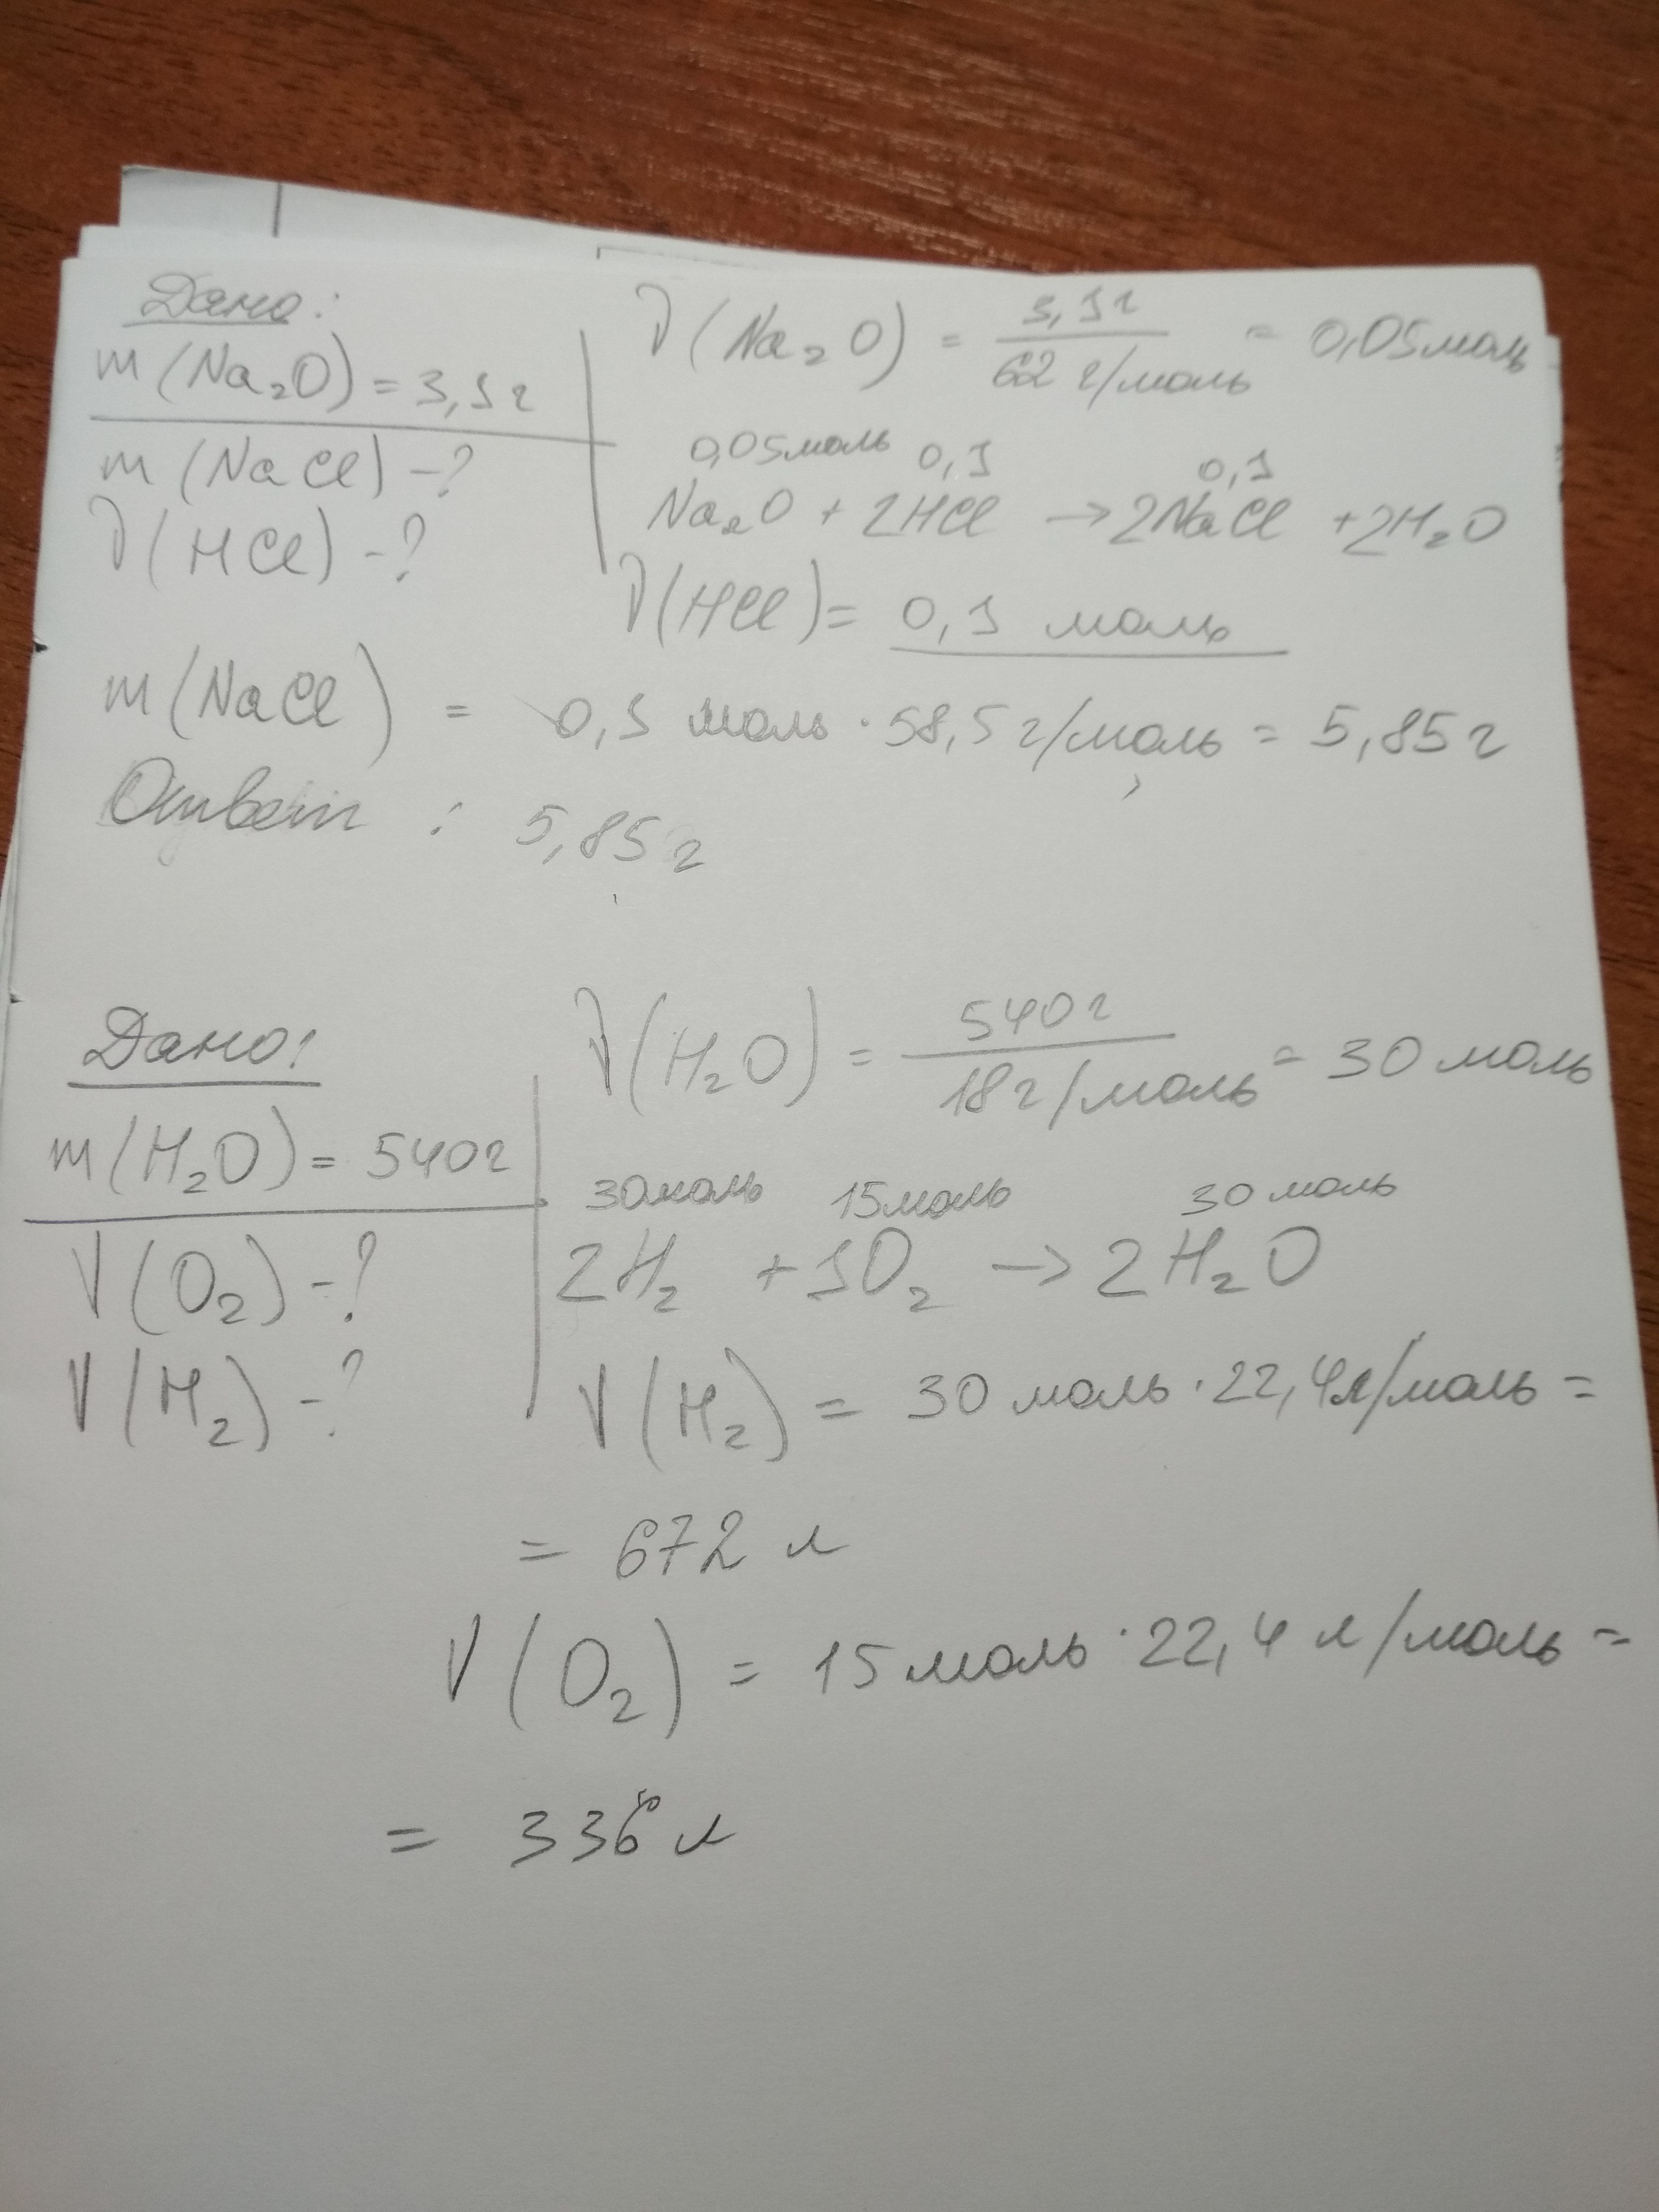 Дано:
m(Na₂O) = 3,1 г
m(NaCl) -?
ν(HCl) -?
ν(Na₂O) = 3,1 г / 62 г/моль = 0,05 моль
0,05 моль 0,1 0,1
Na₂O + 2HCl → 2NaCl + 2H₂O
ν(HCl) = 0,1 моль
m(NaCl) = 0,1 моль · 58,5 г/моль = 5,85 г
Ответ: 5,85 г
Дано:
m(H₂O) = 540 г
V(O₂) -?
V(H₂) -?
ν(H₂O) = 540 г / 18 г/моль = 30 моль
30 моль 15 моль 30 моль
2H₂ + 1O₂ → 2H₂O
V(H₂) = 30 моль · 22,4 л/моль =
= 672 л
V(O₂) = 15 моль · 22,4 л/моль =
= 336 л